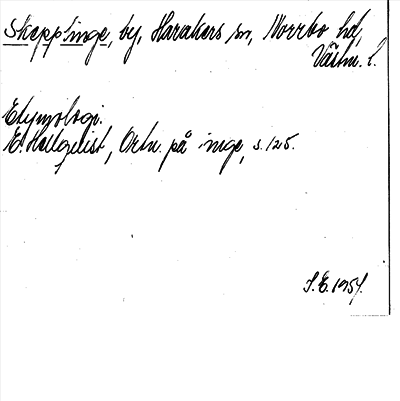 Skepplinge, by, Harakers sn, Norrbo hd,
Västm. l.
Etymologi.
E. Hellquist, Ortn. på inge, s. 125.
S.E. 1954.